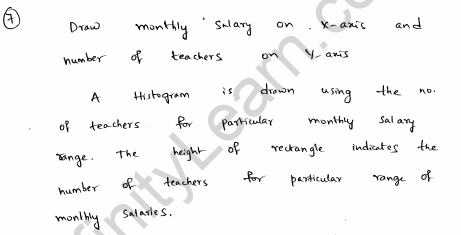 7 Draw monthly Salary on x-axis and
number of teachers on Y-axis
A Histogram is drawn using the no.
of teachers for particular monthly salary
range. The height of rectangle indicates the
number of teachers for particular range of
monthly salaries.